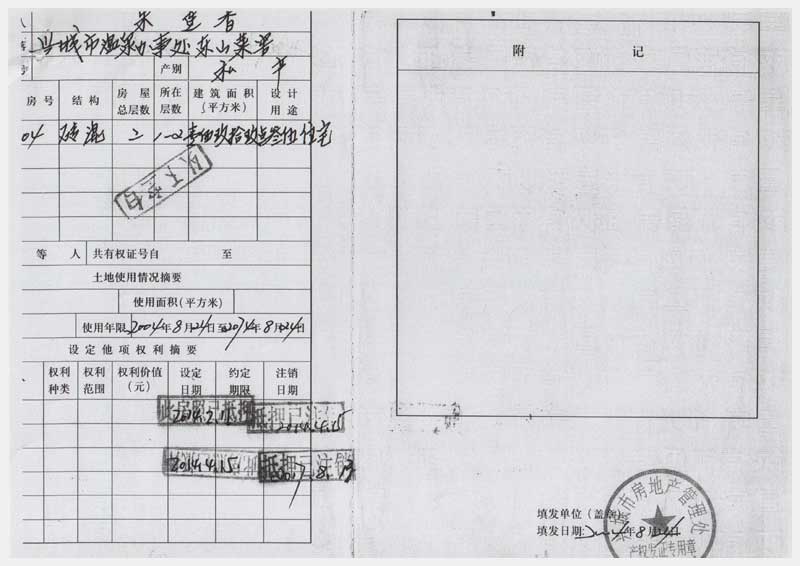 兴城市温泉办事处东山菜
产别 私
房号 结构 房屋总层数 所在层数 建筑面积(平方米) 设计用途
04 砖混 2 1-2 住宅
以下空白
等 人 共有权证号自 至
土地使用情况摘要
使用面积(平方米)
使用年限 2004年8月24日至2074年8月24日
设定他项权利摘要
权利种类 权利范围 权利价值(元) 设定日期 约定期限 注销日期
此房照已抵押 抵押已注
2014.4.15
2014.4.15. 抵押已注销
附 记
填发单位(盖章)
填发日期: 2004年8月24日
兴城市房地产管理处
产权发证专用章